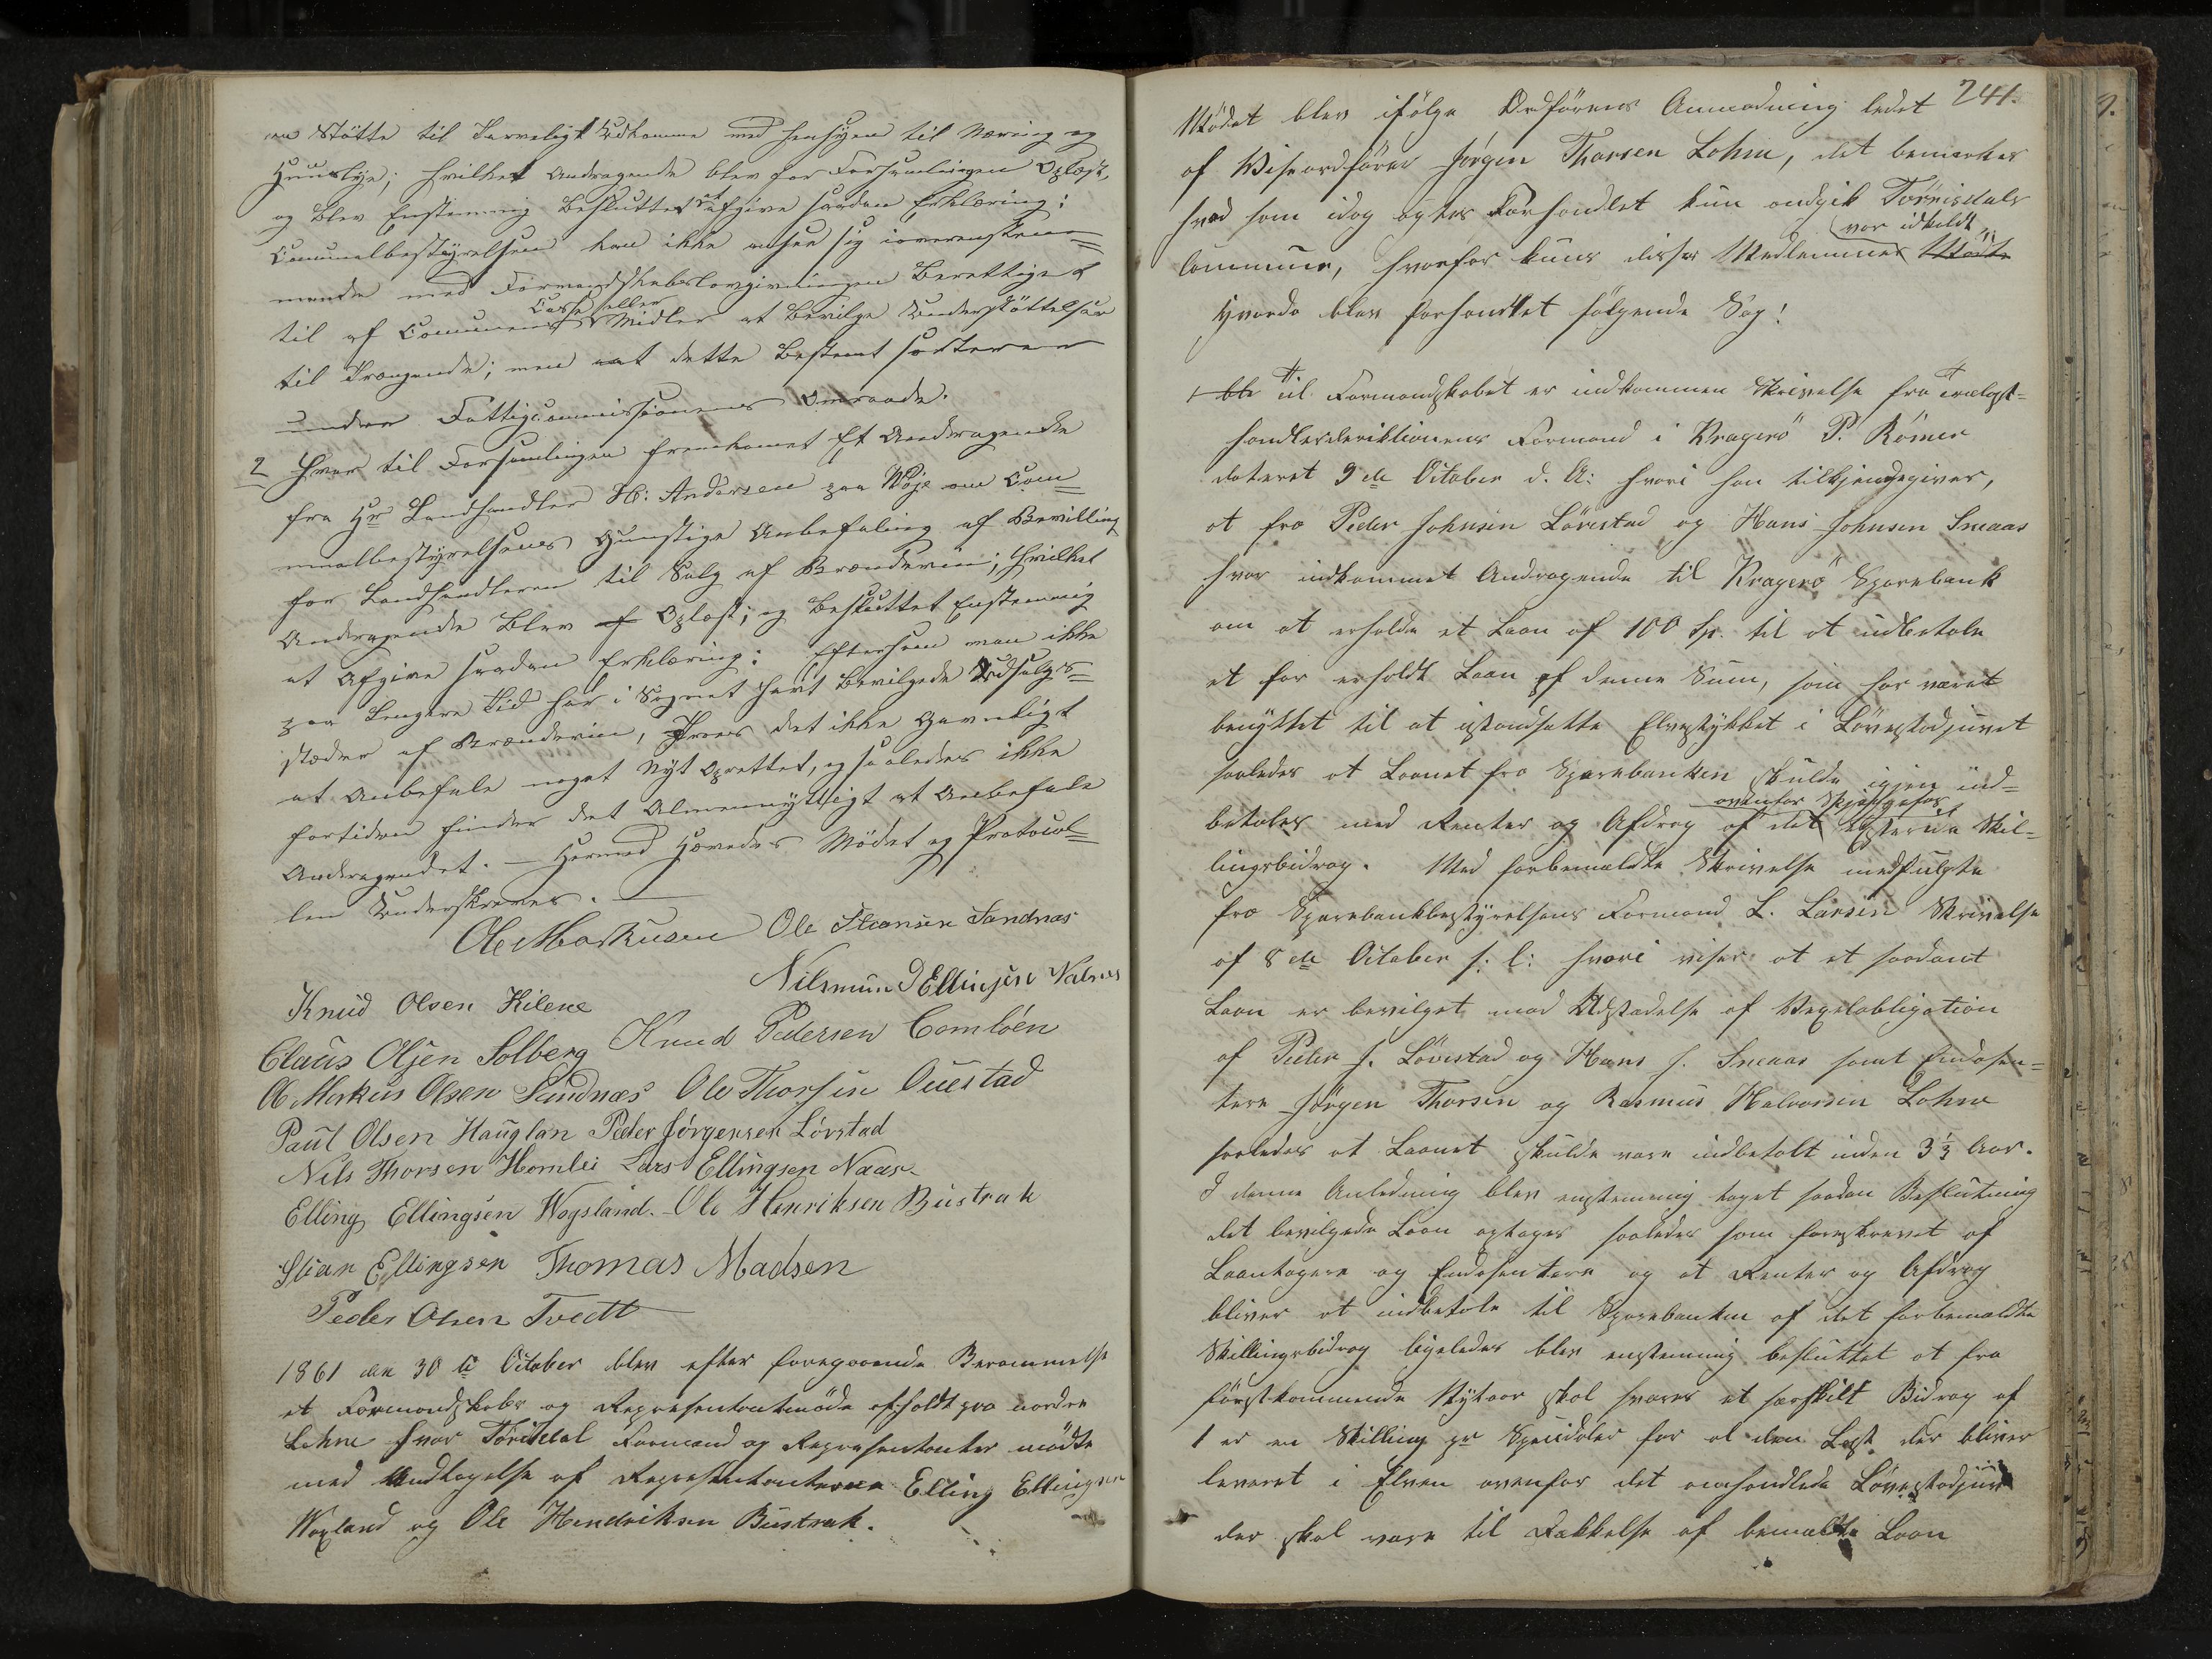 en Støtte til Tarveligt Udkomme med Hensyn til Næring og
Huuslye; hvilket Andragende blev for Forsamlingen Oplæst,
og blev Enstemmig Besluttet at afgive saadan Erklæring:
Comunalbestyrelsen kan ikke ansee sig ioverenstem=
mende med Formandskabslovgivningen Berettiget
til af Comunens Casse eller Midler at Bevilge Understøttelser
til Trængende; men at dette Bestemt sorterer
under Fattigcommissionens Omraade.
2 Hvor til Forsamlingen fremkomet Et Andragende
fra Hr Landhandler H: Andersen paa Woje om Com=
munalbestyrelsens Gunstige Anbefaling af Bevilling
for Landhandleren til Salg af Brændeviin; hvilket
Andragende Blev Oplæst; og Besluttet Enstemmig
at Afgive saadan Erklæring: Eftersom man ikke
paa Lengere Tid har i Sognet havt Bevilgede Udsalgs=
stæder af Brændeviin, Troes det ikke Gavnligt
at Anbefale noget Nyt Oprettet, og saaledes ikke
fortiden finder det Almennyttigt at Anbefale
Andragendet. — Hermed Hævedes Mødet og Protocol=
len Underskreves. —
Ole Markusen Ole Stiansen Sandnæs
Knud Olsen Kilene Nilsmund Ellingsen
Claus Olsen Solberg Knud Pedersen Tomloen
Ol. Markus Olsen Sandnæs Ole Thorsen Ouestad
Paul Olsen Hauglan Peder Jörgensen Lövstad
Nils Thorsen Homlei Lars Ellingsen Naas
Elling Ellingsen Wogsland. Ole Henriksen Bustrak
Stian Ellingsen Thomas Madsen
Peder Olsen Tvedt
1861 den 30te October blev efter foregaaende Berammelse
et Formandskabs og Repræsentantmøde afholdt paa nordre
Lohne hvor Tøridal Formænd og Repræsentanter mødte
med Undtagelse af Repræsentanterne Elling Ellingsen
Wogland og Ole Hendriksen Bustrak.
241.
Mødet blev ifølge Ordførerns Anmodning ledet
af Viseordfører Jørgen Thorsen Lohne, det bemærkes
hvad som idag agtes Forhandlet kun angik Tørrisdals
var idkaldt
Commune, hvorfor kuns disses Medlemmer Mødte
Hvorda blev forhandlet følgende Sag!
1 Til Formandskabet er indkommen Skrivelse fra trælast=
handlerdirektionens Formand i Kragerø P. Rømer
dateret 9de October d. A: hvori han tilkjendegiver,
at fra Peder Johnsen Lövestad og Hans Johnsen Sneaas
har indkommet Andragende til Kragerø Sparebank
om at erholde et Laan af 100 Sp. til at udbetale
et før erholdt Laan af denne Sum, som har været
benyttet til at istandsætte Elvestykket i Løvestadjuvet
saaledes at Laanet fra Sparebanken skulde igjen ind=
betales med Renter og Afdrag af det ovenfor Skil=
lingsbidrag. Med forbemældte Skrivelse medfulgte
fra Sparebankbestyrelsens Formand L. Larsen Skrivelse
af 8de October hvori viser at et saadant
Laan er bevilget mod Udstædelse af Vexelobligation
af Peder J. Lövestad og Hans J. Sneaas samt Endosen=
tere Jörgen Thorsen og Rasmus Halvorsen Lohne
saaledes at Laanet skulde være indbetalt inden 3⅓ Aar.
I denne Anledning blev enstemmig taget saadan Beslutning
det bevilgede Laan optages saaledes som foreskrevet af
Laantagere og Endosentere og at Renter og Afdrag
bliver at indbetale til Sparebanken af det forbemældte
Skillingsbidrag ligeledes blev enstemmig besluttet at fra
førstkommende Nytaar skal svares et særskilt Bidrag af
1 er en Skilling pr Speidaler for al den Last der bliver
leveret i Elven ovenfor det omhandlede Løvestadjuv
der skal være til Dækkelse af bemældte Laan